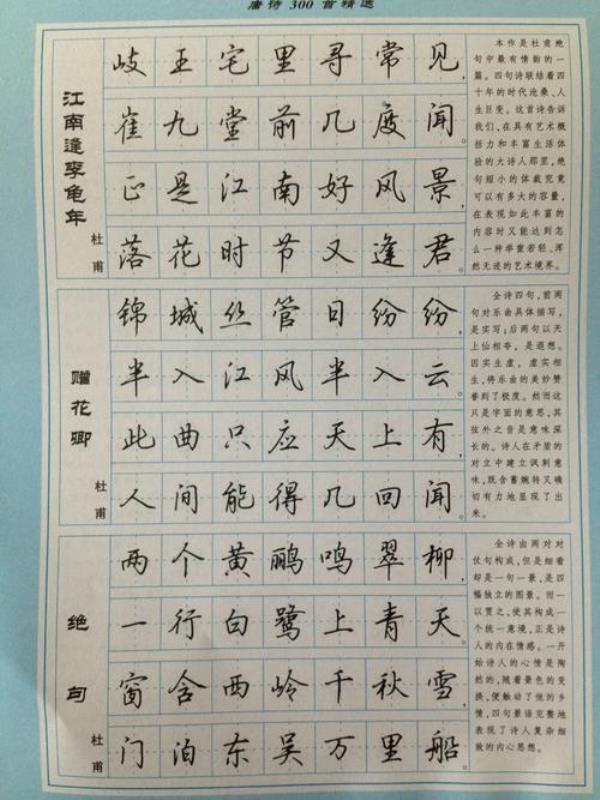 唐诗300首精选
江南逢李龟年
杜甫
岐王宅里寻常见,
崔九堂前几度闻。
正是江南好风景,
落花时节又逢君。
本作是杜甫绝
句中最有情韵的一
篇。四句诗联结着四
十年的时代沧桑、人
生巨变。这首诗告诉
我们,在具有艺术概
括力和丰富生活体
验的大诗人那里,绝
句短小的体裁究竟
可以有多大的容量,
在表现如此丰富的
内容时又能达到怎
么一种举重若轻、浑
然无迹的艺术境界。
赠花卿
杜甫
锦城丝管日纷纷,
半入江风半入云。
此曲只应天上有,
人间能得几回闻。
全诗四句,前两
句对乐曲具体描写,
是实写;后两句以天
上仙相夸,是遐想。
因实生虚,虚实相
生,将乐曲的美妙赞
誉到了极度。然而这
只是字面的意思,其
弦外之音是意味深
长的。诗人在矛盾的
对立中建立讽刺意
味,既含蓄婉转又确
切有力地显现了出
来。
绝句
杜甫
两个黄鹂鸣翠柳,
一行白鹭上青天。
窗含西岭千秋雪,
门泊东吴万里船。
全诗由两对对
仗句构成,但是细看
却是一句一景,是四
幅独立的图景。而一
以贯之,使其构成一
个统一意境,正是诗
人的内在情感。一开
始诗人的心情是陶
然的,随着景色的变
换,便触动了他的乡
情,四句景语完整地
表现了诗人复杂细
致的内心思想。